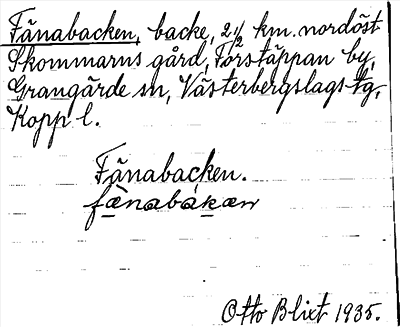 Fänabacken, backe, 2 1/2 km. nordöst
Skommarns gård, Förstäppan by,
Grangärde sn, Västerbergslags tg,
Kopp l.
Fänabacken.
fænabakan
Otto Blixt 1935.